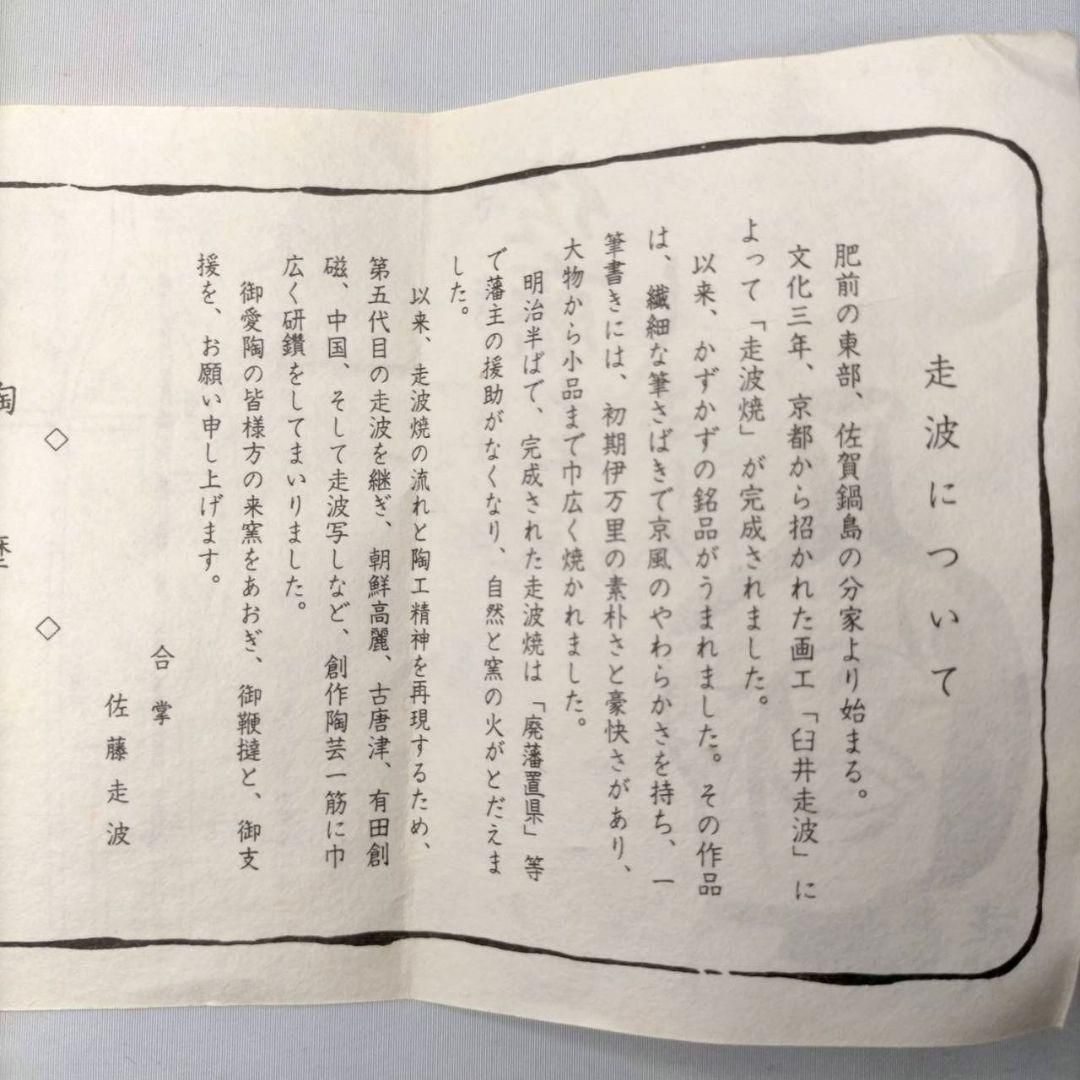 走波について
肥前の東部、佐賀鍋島の分家より始まる。
文化三年、京都から招かれた画工「臼井走波」に
よって「走波焼」が完成されました。
以来、かずかずの銘品がうまれました。その作品
は、繊細な筆さばきで京風のやわらかさを持ち、一
筆書きには、初期伊万里の素朴さと豪快さがあり、
大物から小品まで巾広く焼かれました。
明治半ばで、完成された走波焼は「廃藩置県」等
で藩主の援助がなくなり、自然と窯の火がとだえま
した。
以来、走波焼の流れと陶工精神を再現するため、
第五代目の走波を継ぎ、朝鮮高麗、古唐津、有田創
磁、中国、そして走波写しなど、創作陶芸一筋に巾
広く研鑽をしてまいりました。
御愛陶の皆様方の来窯をあおぎ、御鞭撻と、御支
援を、お願い申し上げます。
合掌
佐藤走波
◇ ◇
陶歴